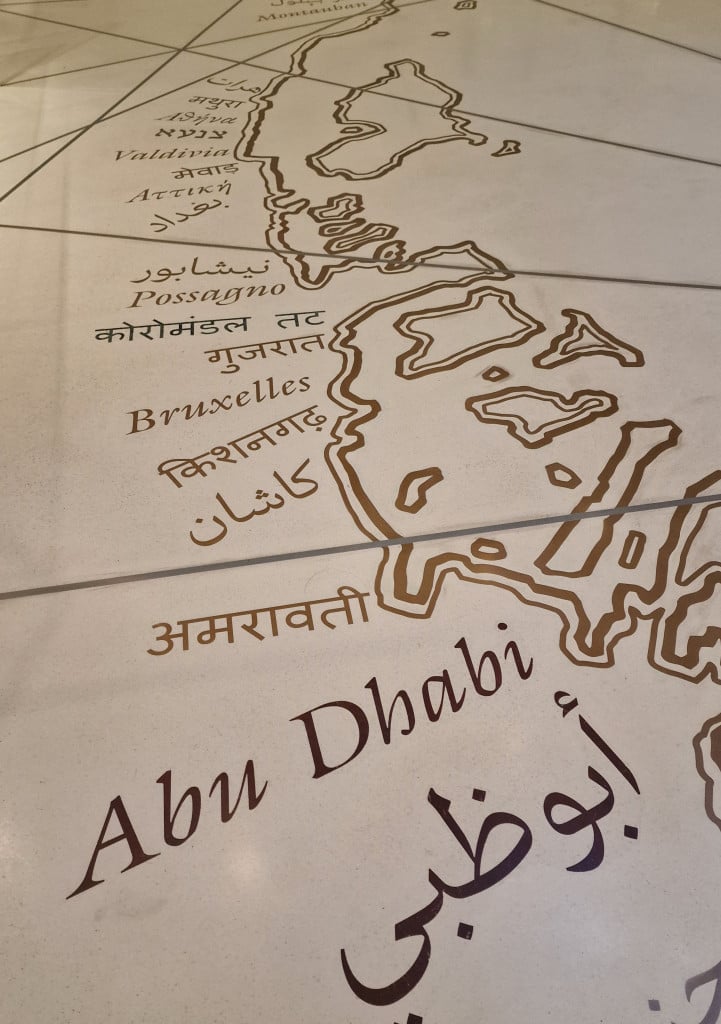 Montauban
هرات
मथुरा
Αθήνα
צנעא
Valdivia
मेवाड़
Αττική
بغداد
نيشابور
Possagno
कोरोमंडल तट
गुजरात
Bruxelles
किशनगढ़
كاشان
अमरावती
Abu Dhabi
أبوظبي